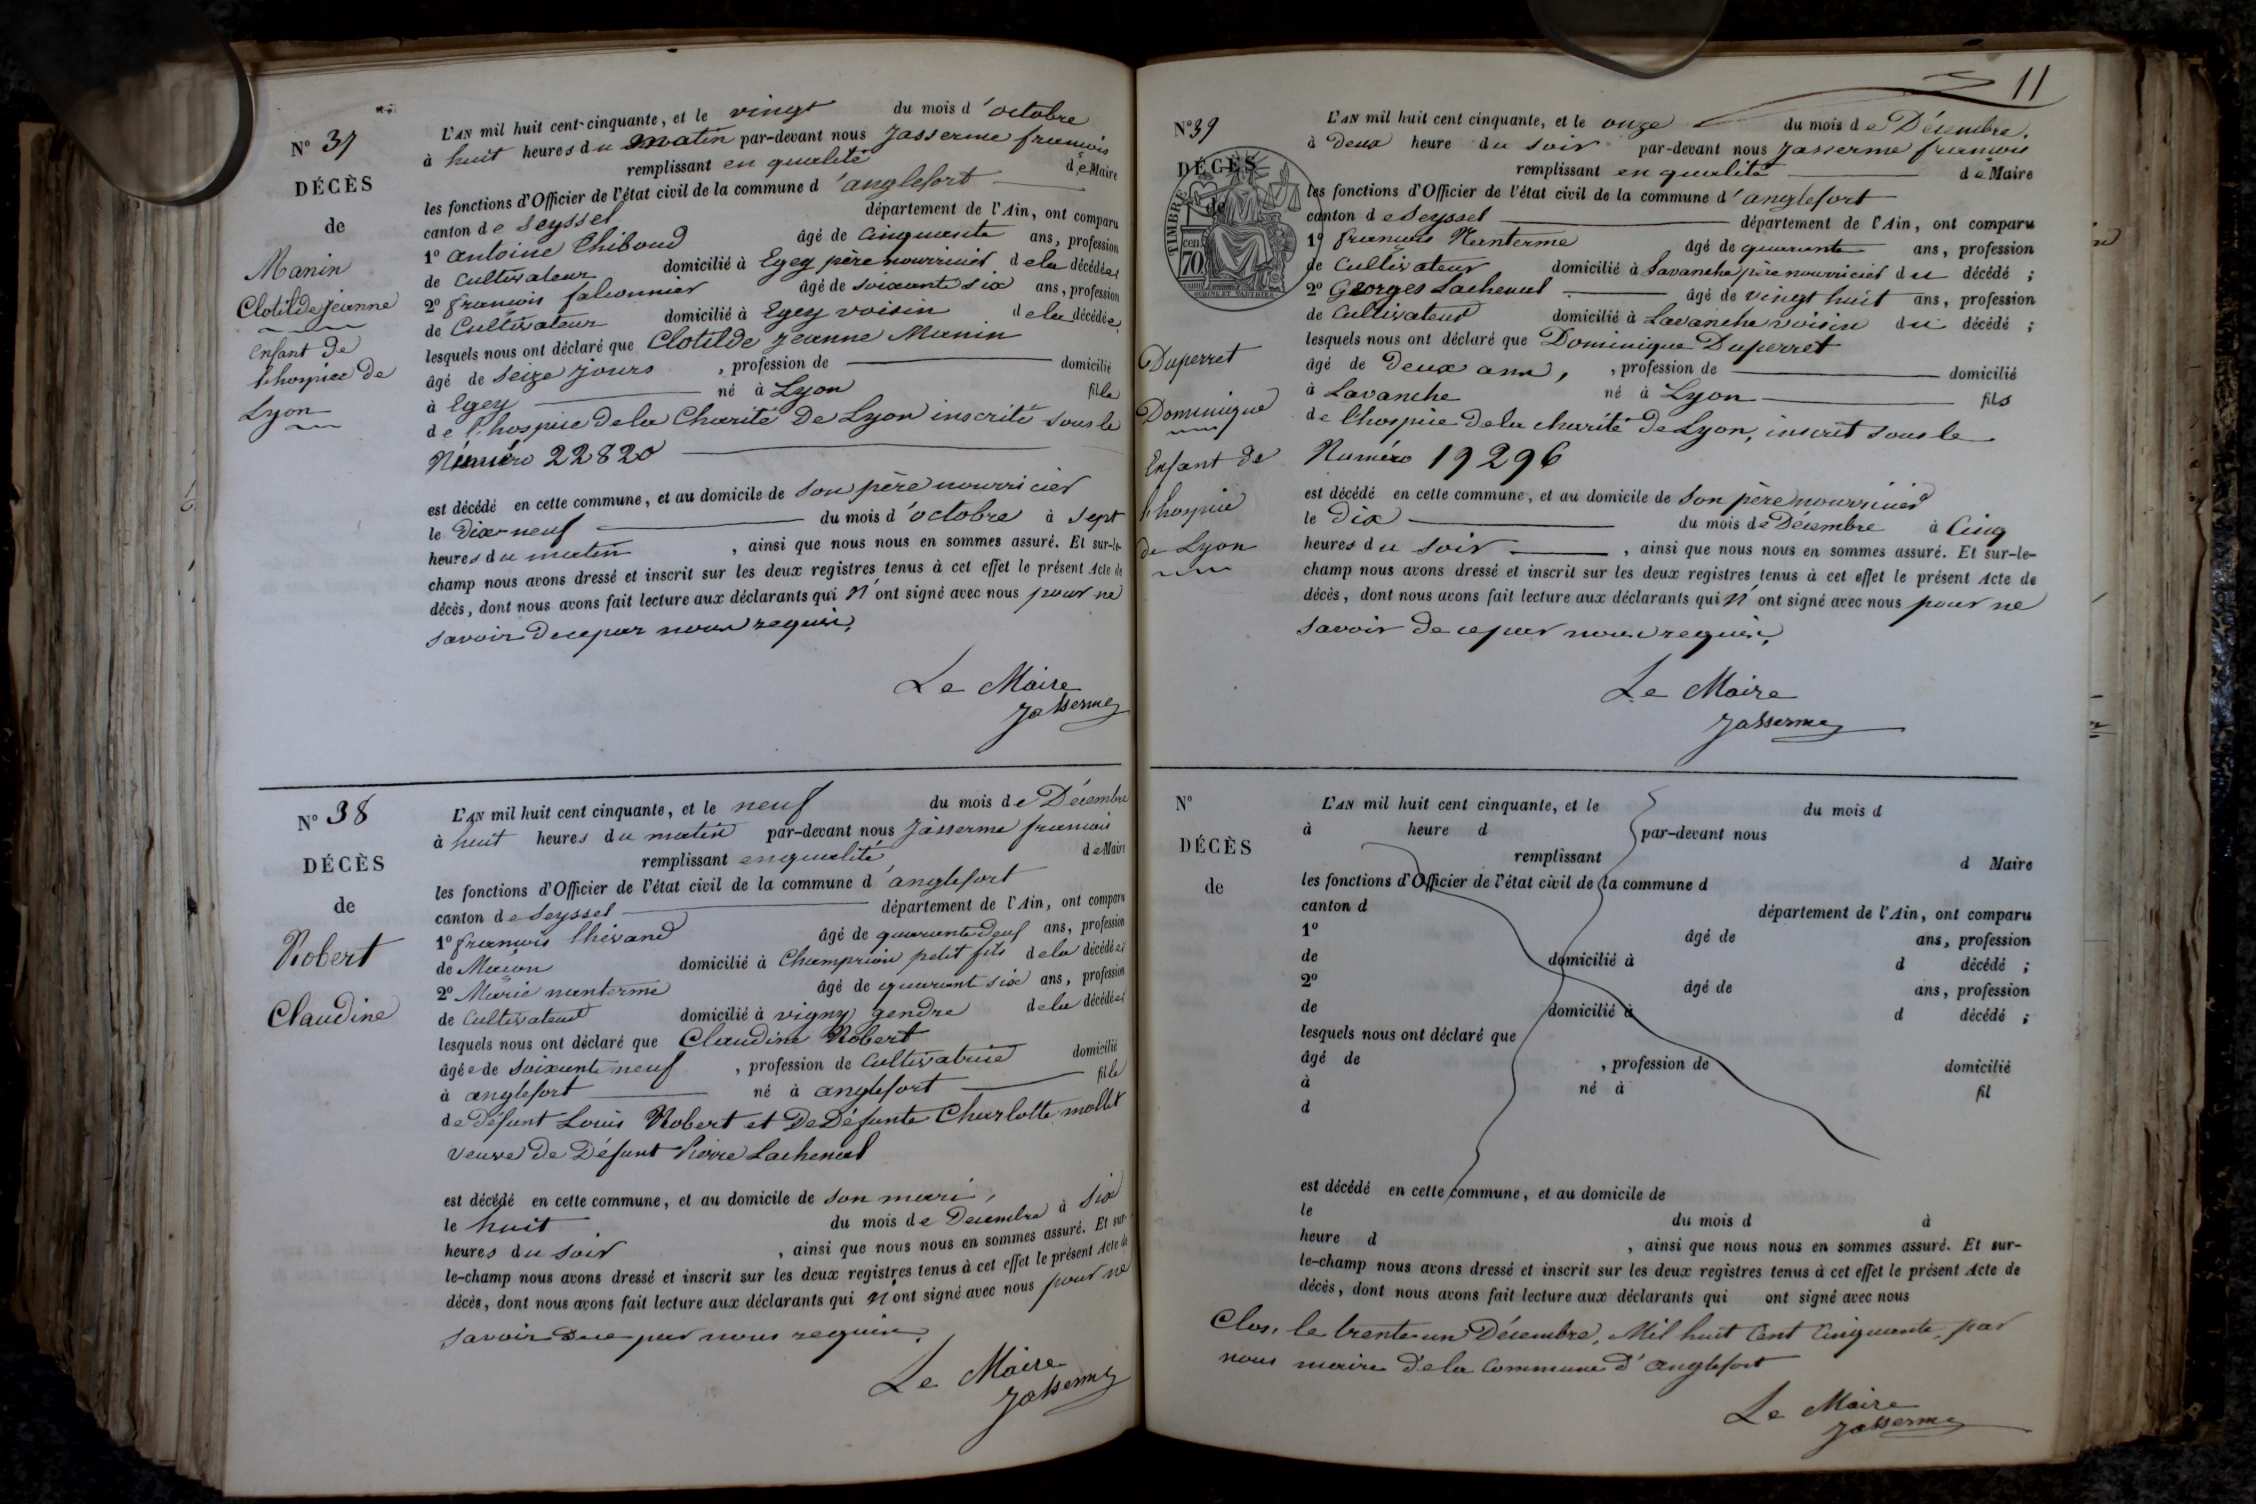 N° 37
DÉCÈS
de
Manin
Clotilde Jeanne
Enfant de
l'hospice de
Lyon
L'AN mil huit cent cinquante, et le vingt du mois d'octobre
à huit heures du matin par-devant nous Jasserme françois
remplissant en qualité de Maire
les fonctions d'Officier de l'état civil de la commune d'anglefort
canton de Seyssel département de l'Ain, ont comparu
1° Antoine Thiboud âgé de Cinquante ans, profession
de Cultivateur domicilié à Egey père nourricier de la décédée
2° françois falconnier âgé de soixante six ans, profession
de Cultivateur domicilié à Egey voisin de la décédée
lesquels nous ont déclaré que Clotilde Jeanne Manin
âgé de Seize jours , profession de domicilié
à Egey né à Lyon fille
de l'hospice de la Charité De Lyon inscrite sous le
Numéro 22820
est décédé en cette commune, et au domicile de son père nourricier
le Dix-neuf du mois d'octobre à sept
heures du matin , ainsi que nous nous en sommes assuré. Et sur-le-
champ nous avons dressé et inscrit sur les deux registres tenus à cet effet le présent Acte de
décès, dont nous avons fait lecture aux déclarants qui n'ont signé avec nous pour ne
savoir de ce par nous requis.
Le Maire
Jasserme
N° 38
DÉCÈS
de
Robert
Claudine
L'AN mil huit cent cinquante, et le neuf du mois de Décembre
à huit heures du matin par-devant nous Jasserme françois
remplissant en qualité de Maire
les fonctions d'Officier de l'état civil de la commune d'anglefort
canton de Seyssel département de l'Ain, ont comparu
1° françois âgé de quarante deux ans, profession
de Maçon domicilié à Champriou petit fils de la décédée
2° Marie nanterme âgé de quarant six ans, profession
de Cultivateur domicilié à vigny gendre de la décédée
lesquels nous ont déclaré que Claudine Robert
âgée de Soixante neuf , profession de Cultivatrice domicilié
à anglefort né à anglefort fille
de Défunt Louis Robert et De Défunte Charlotte mollet
veuve de Défunt Pierre Lachenal
est décédé en cette commune, et au domicile de son mari,
le huit du mois de Decembre à Six
heures du soir , ainsi que nous nous en sommes assuré. Et sur-
le-champ nous avons dressé et inscrit sur les deux registres tenus à cet effet le présent Acte de
décès, dont nous avons fait lecture aux déclarants qui n'ont signé avec nous pour ne
savoir de ce par nous requis.
Le Maire
Jasserme
11
N° 39
DÉCÈS
de
TIMBRE
cen. 70
Duperret
Dominique
Enfant de
l'hospice
de Lyon
L'AN mil huit cent cinquante, et le onze du mois de Décembre.
à Deux heure du soir par-devant nous Jasserme françois
remplissant en qualité de Maire
les fonctions d'Officier de l'état civil de la commune d'anglefort
canton de Seyssel département de l'Ain, ont comparu
1° françois Nanterme âgé de quarante ans, profession
de Cultivateur domicilié à Lavanche père nourricier du décédé ;
2° Georges Lachenal âgé de vingt huit ans, profession
de Cultivateur domicilié à Lavanche voisin du décédé ;
lesquels nous ont déclaré que Dominique Duperret
âgé de Deux ans, , profession de domicilié
à Lavanche né à Lyon fils
de l'hospice de la charité De Lyon, inscrit sous le
Numéro 19296
est décédé en cette commune, et au domicile de Son père nourricier
le Dix du mois de Décembre à Cinq
heures du soir , ainsi que nous nous en sommes assuré. Et sur-le-
champ nous avons dressé et inscrit sur les deux registres tenus à cet effet le présent Acte de
décès, dont nous avons fait lecture aux déclarants qui n'ont signé avec nous pour ne
savoir de ce par nous requis.
Le Maire
Jasserme
N°
DÉCÈS
de
L'AN mil huit cent cinquante, et le du mois d
à heure d par-devant nous
remplissant d Maire
les fonctions d'Officier de l'état civil de la commune d
canton d département de l'Ain, ont comparu
1° âgé de ans, profession
de domicilié à d décédé ;
2° âgé de ans, profession
de domicilié à d décédé ;
lesquels nous ont déclaré que
âgé de , profession de domicilié
à né à fil
d
est décédé en cette commune, et au domicile de
le du mois d à
heure d , ainsi que nous nous en sommes assuré. Et sur-
le-champ nous avons dressé et inscrit sur les deux registres tenus à cet effet le présent Acte de
décès, dont nous avons fait lecture aux déclarants qui ont signé avec nous
Clos, le trente-un Décembre, Mil huit Cent Cinquante, par
nous maire de la Commune d'anglefort
Le Maire
Jasserme